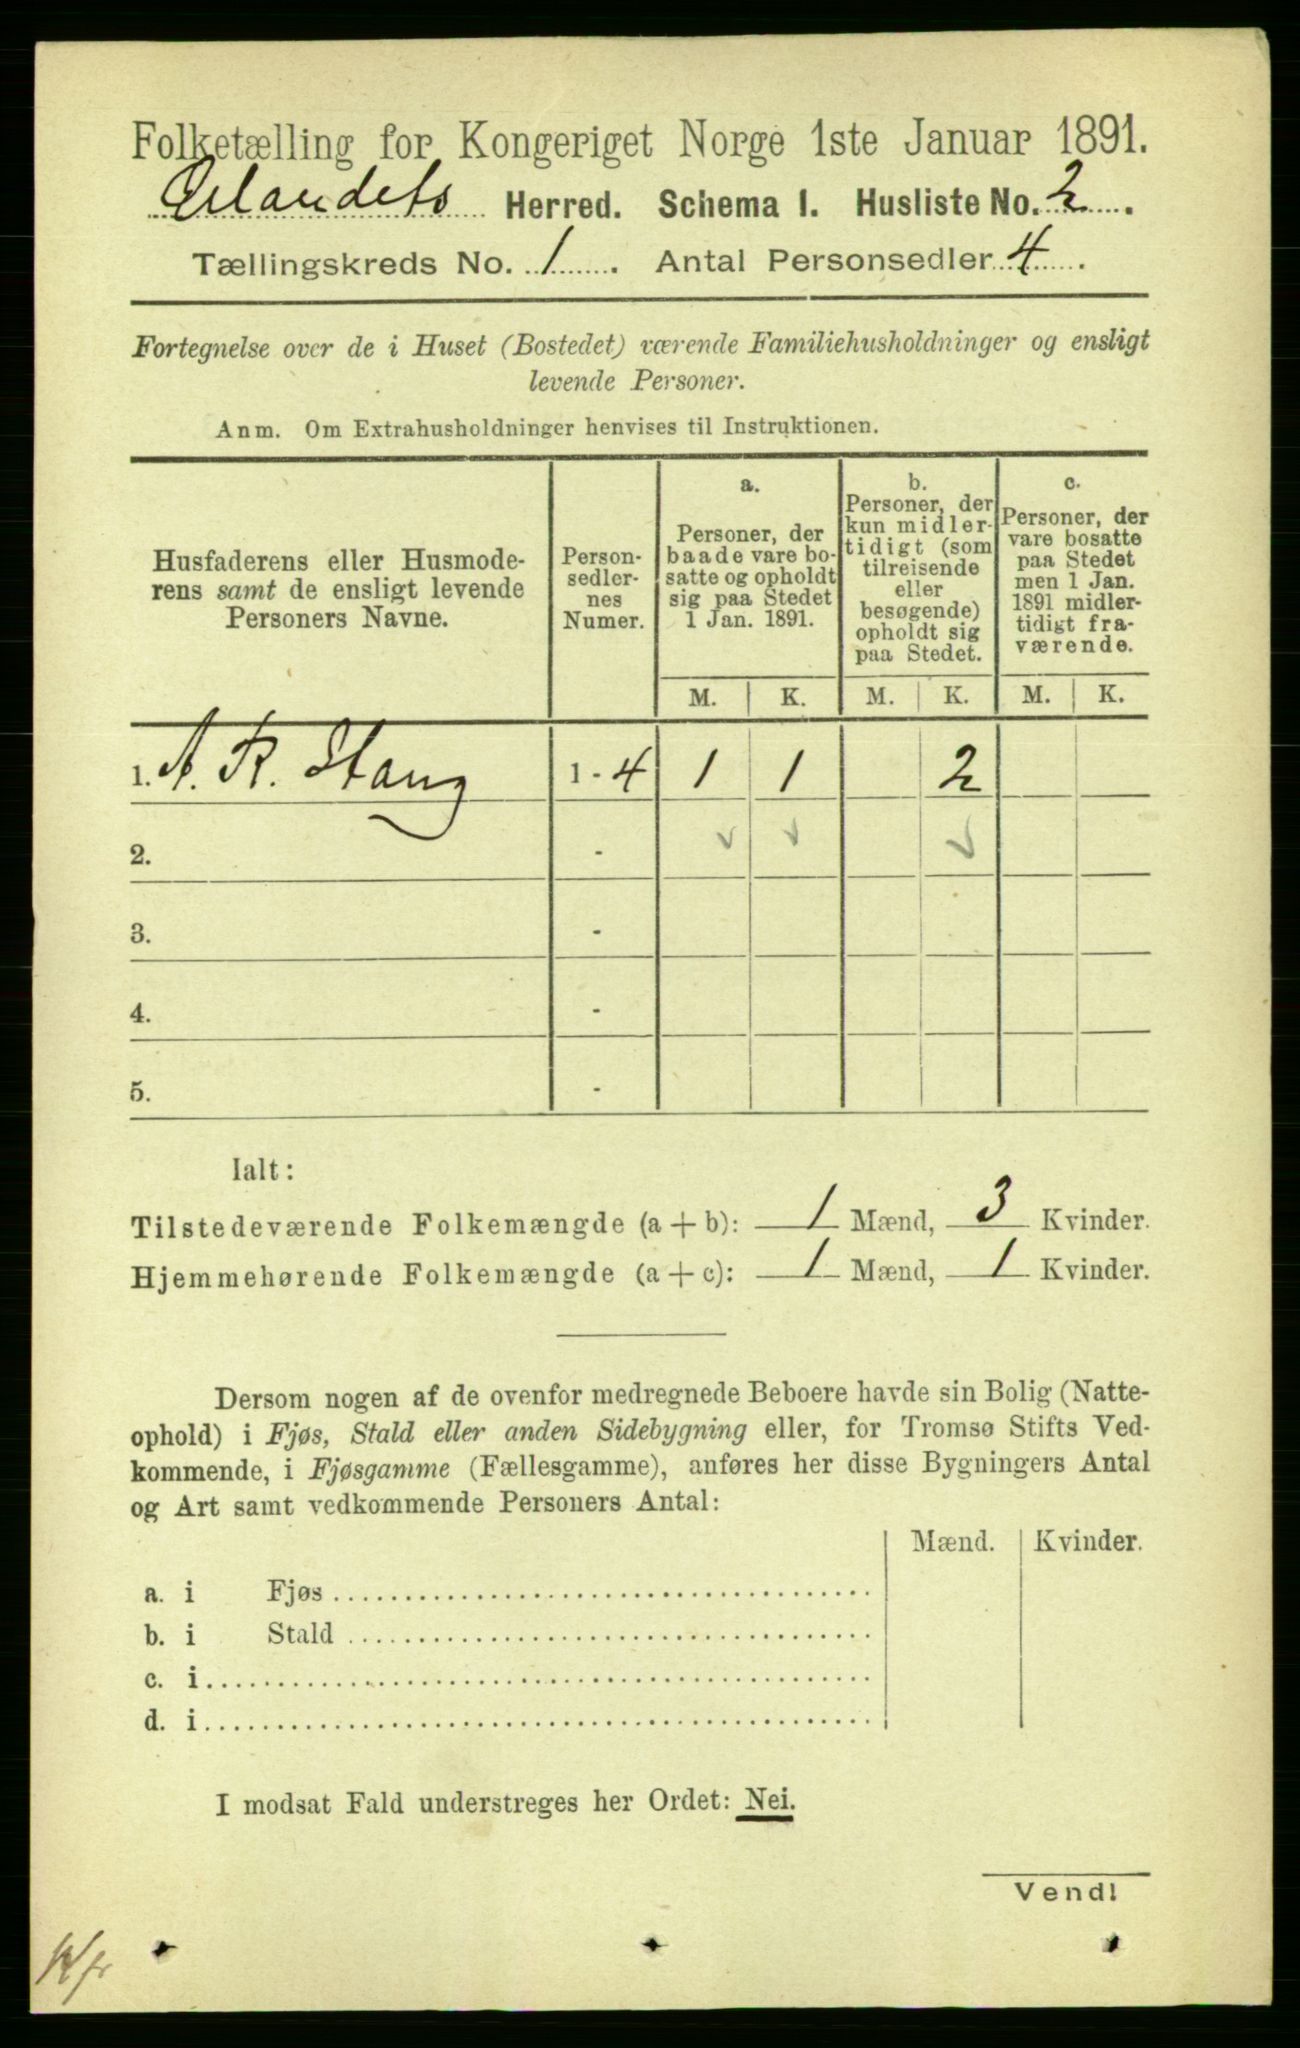 Folketælling for Kongeriget Norge 1ste Januar 1891.
Ørlandets Herred. Schema I. Husliste No. 2.
Tællingskreds No. 1. Antal Personsedler 4.
Fortegnelse over de i Huset (Bostedet) værende Familiehusholdninger og ensligt
levende Personer.
Anm. Om Extrahusholdninger henvises til Instruktionen.
Husfaderens eller Husmode-
rens samt de ensligt levende
Personers Navne.
Person-
sedler-
nes
Numer.
a.
Personer, der
baade vare bo-
satte og opholdt
sig paa Stedet
1 Jan. 1891.
b.
Personer, der
kun midler-
tidigt (som
tilreisende
eller
besøgende)
opholdt sig
paa Stedet.
c.
Personer, der
vare bosatte
paa Stedet
men 1 Jan.
1891 midler-
tidigt fra-
værende.
M. K. M. K. M. K.
1. A. R. Stang 1 - 4 1 1 2
2. -
3. -
4. -
5. -
Ialt:
Tilstedeværende Folkemængde (a + b): 1 Mænd, 3 Kvinder.
Hjemmehørende Folkemængde (a + c): 1 Mænd, 1 Kvinder.
Dersom nogen af de ovenfor medregnede Beboere havde sin Bolig (Natte-
ophold) i Fjøs, Stald eller anden Sidebygning eller, for Tromsø Stifts Ved-
kommende, i Fjøsgamme (Fællesgamme), anføres her disse Bygningers Antal
og Art samt vedkommende Personers Antal:
Mænd. Kvinder.
a. i Fjøs
b. i Stald
c. i
d. i
I modsat Fald understreges her Ordet: Nei.
Vend!